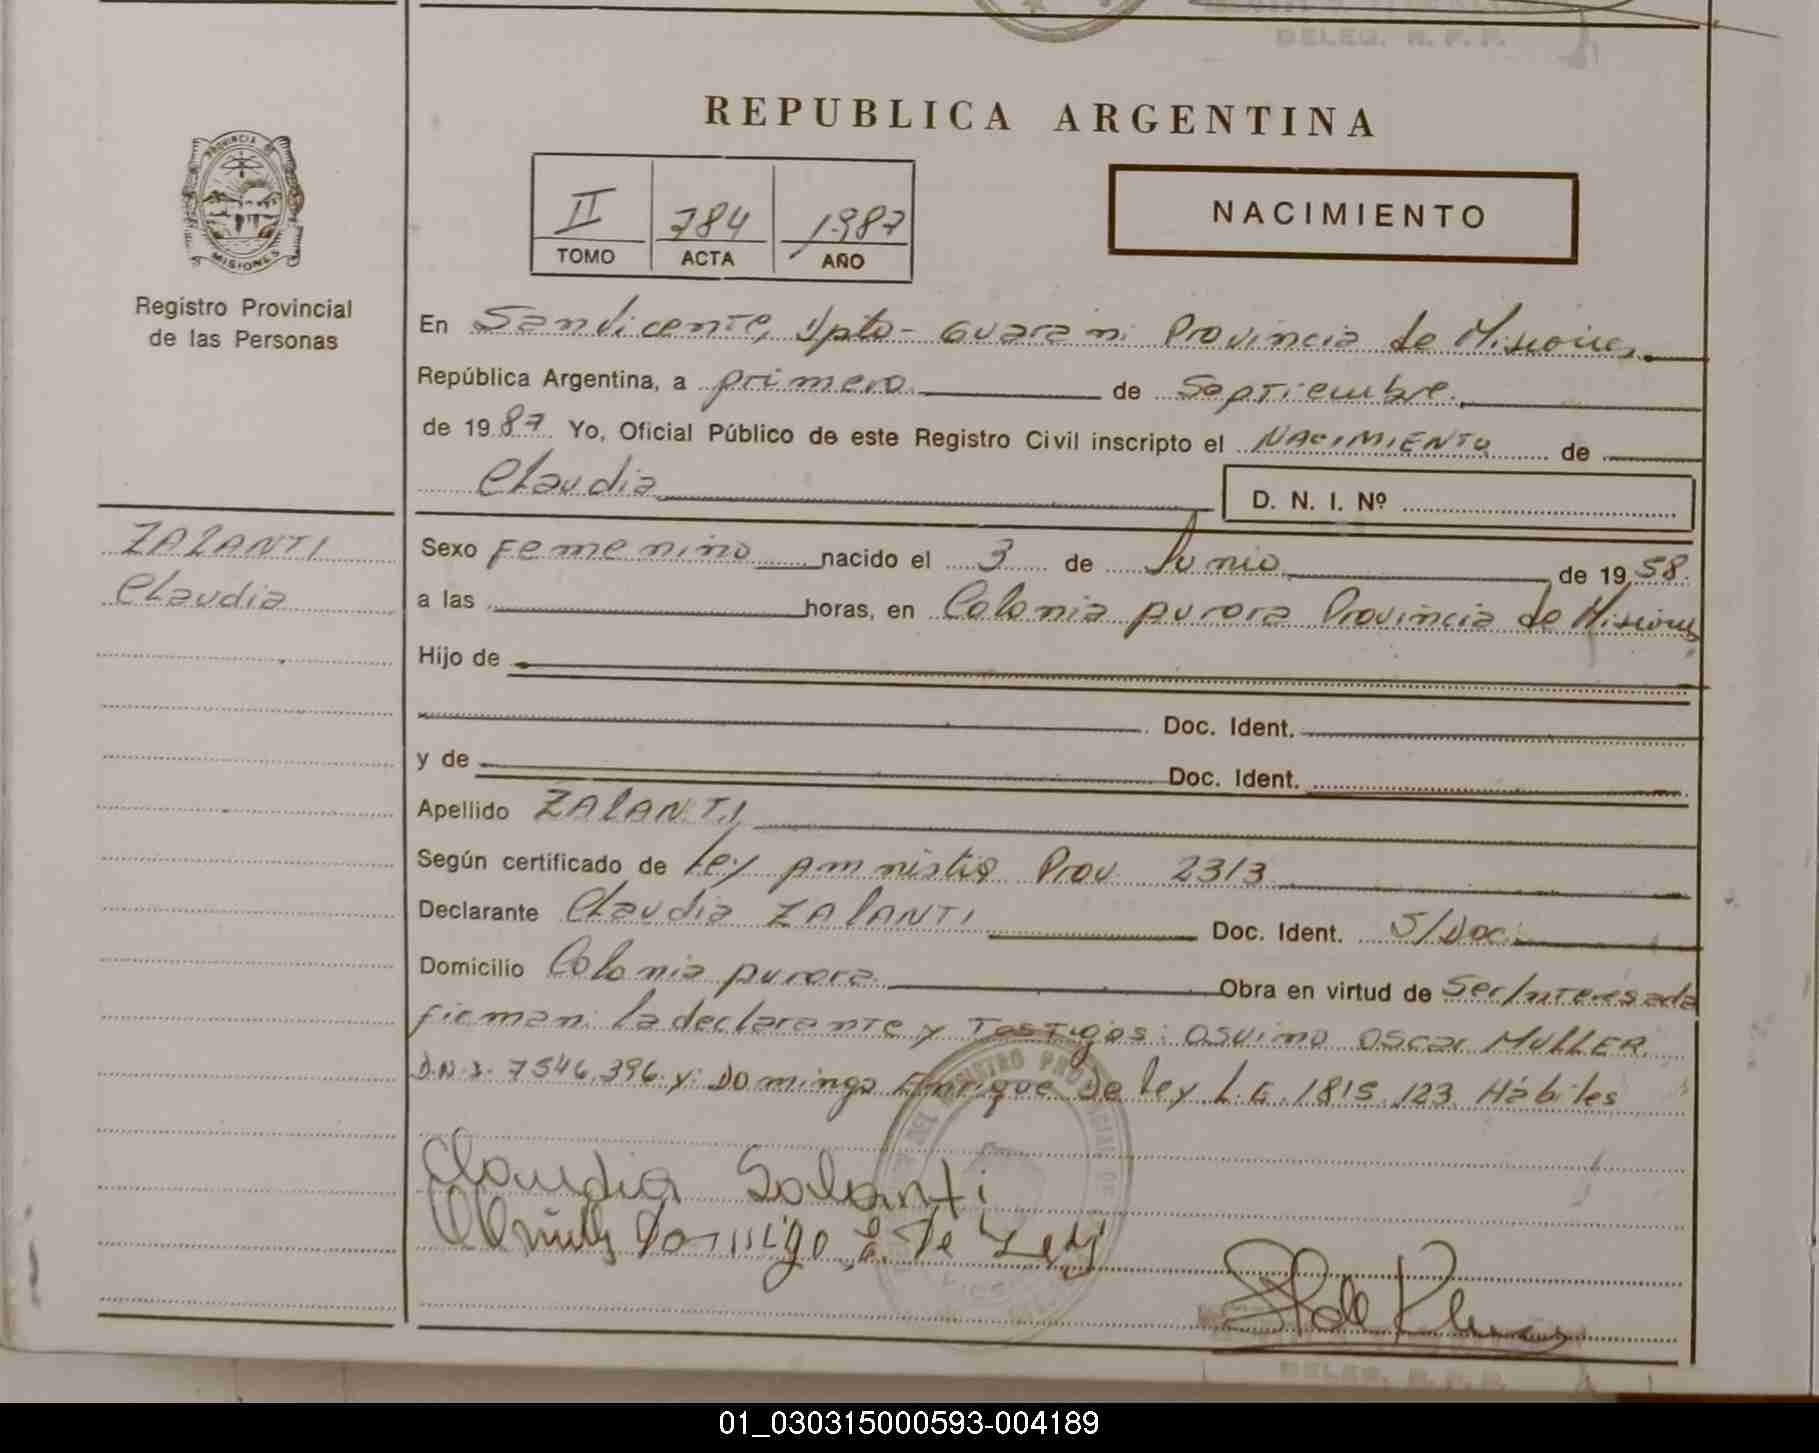 DELEG. R. P. P.
REPUBLICA ARGENTINA
PROVINCIA DE
MISIONES
Registro Provincial
de las Personas
II 784 1987
TOMO ACTA AÑO
NACIMIENTO
En San Vicente, Dpto- Guarani Provincia de Misiones.
República Argentina, a primero de Septiembre.
de 1987 Yo, Oficial Público de este Registro Civil inscripto el NACIMIENTO de
Claudia
D. N. I. Nº
ZALANTI
Claudia
Sexo Femenino nacido el 3 de Junio de 1958.
a las horas, en Colonia Aurora Provincia de Misiones
Hijo de
Doc. Ident.
y de Doc. Ident.
Apellido ZALANTI
Según certificado de Ley Amnistia Prov 2313
Declarante Claudia ZALANTI Doc. Ident. S/Doc.
Domicilio Colonia Aurora Obra en virtud de Ser Interesada
firman: la declarante y Testigos: Osvino Oscar MULLER
D.N.I. 7546.396 y: Domingo Enrique De Ley L.E. 1815.123 Hábiles
Claudia Solanti
Domingo E. De Ley
DELEG. R. P. P.
01_030315000593-004189